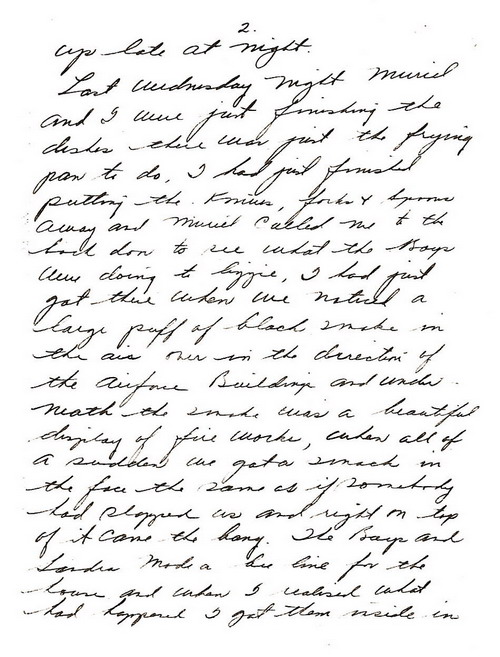 2.
up late at night.
Last Wednesday night Muriel
and I were just finishing the
dishes there was just the frying
pan to do. I had just finished
putting the Knives, forks & spoons
away and Muriel called me to the
back door to see what the Boys
were doing to lizzie, I had just
got there when we noticed a
large puff of black smoke in
the air over in the direction of
the Airforce Building and under
neath the smoke was a beautiful
display of fire works, when all of
a sudden we got a smack in
the face the same as if somebody
had slapped us and right on top
of it came the bang. The Boys and
Sandra made a bee line for the
house and when I realised what
had happened I got them inside in